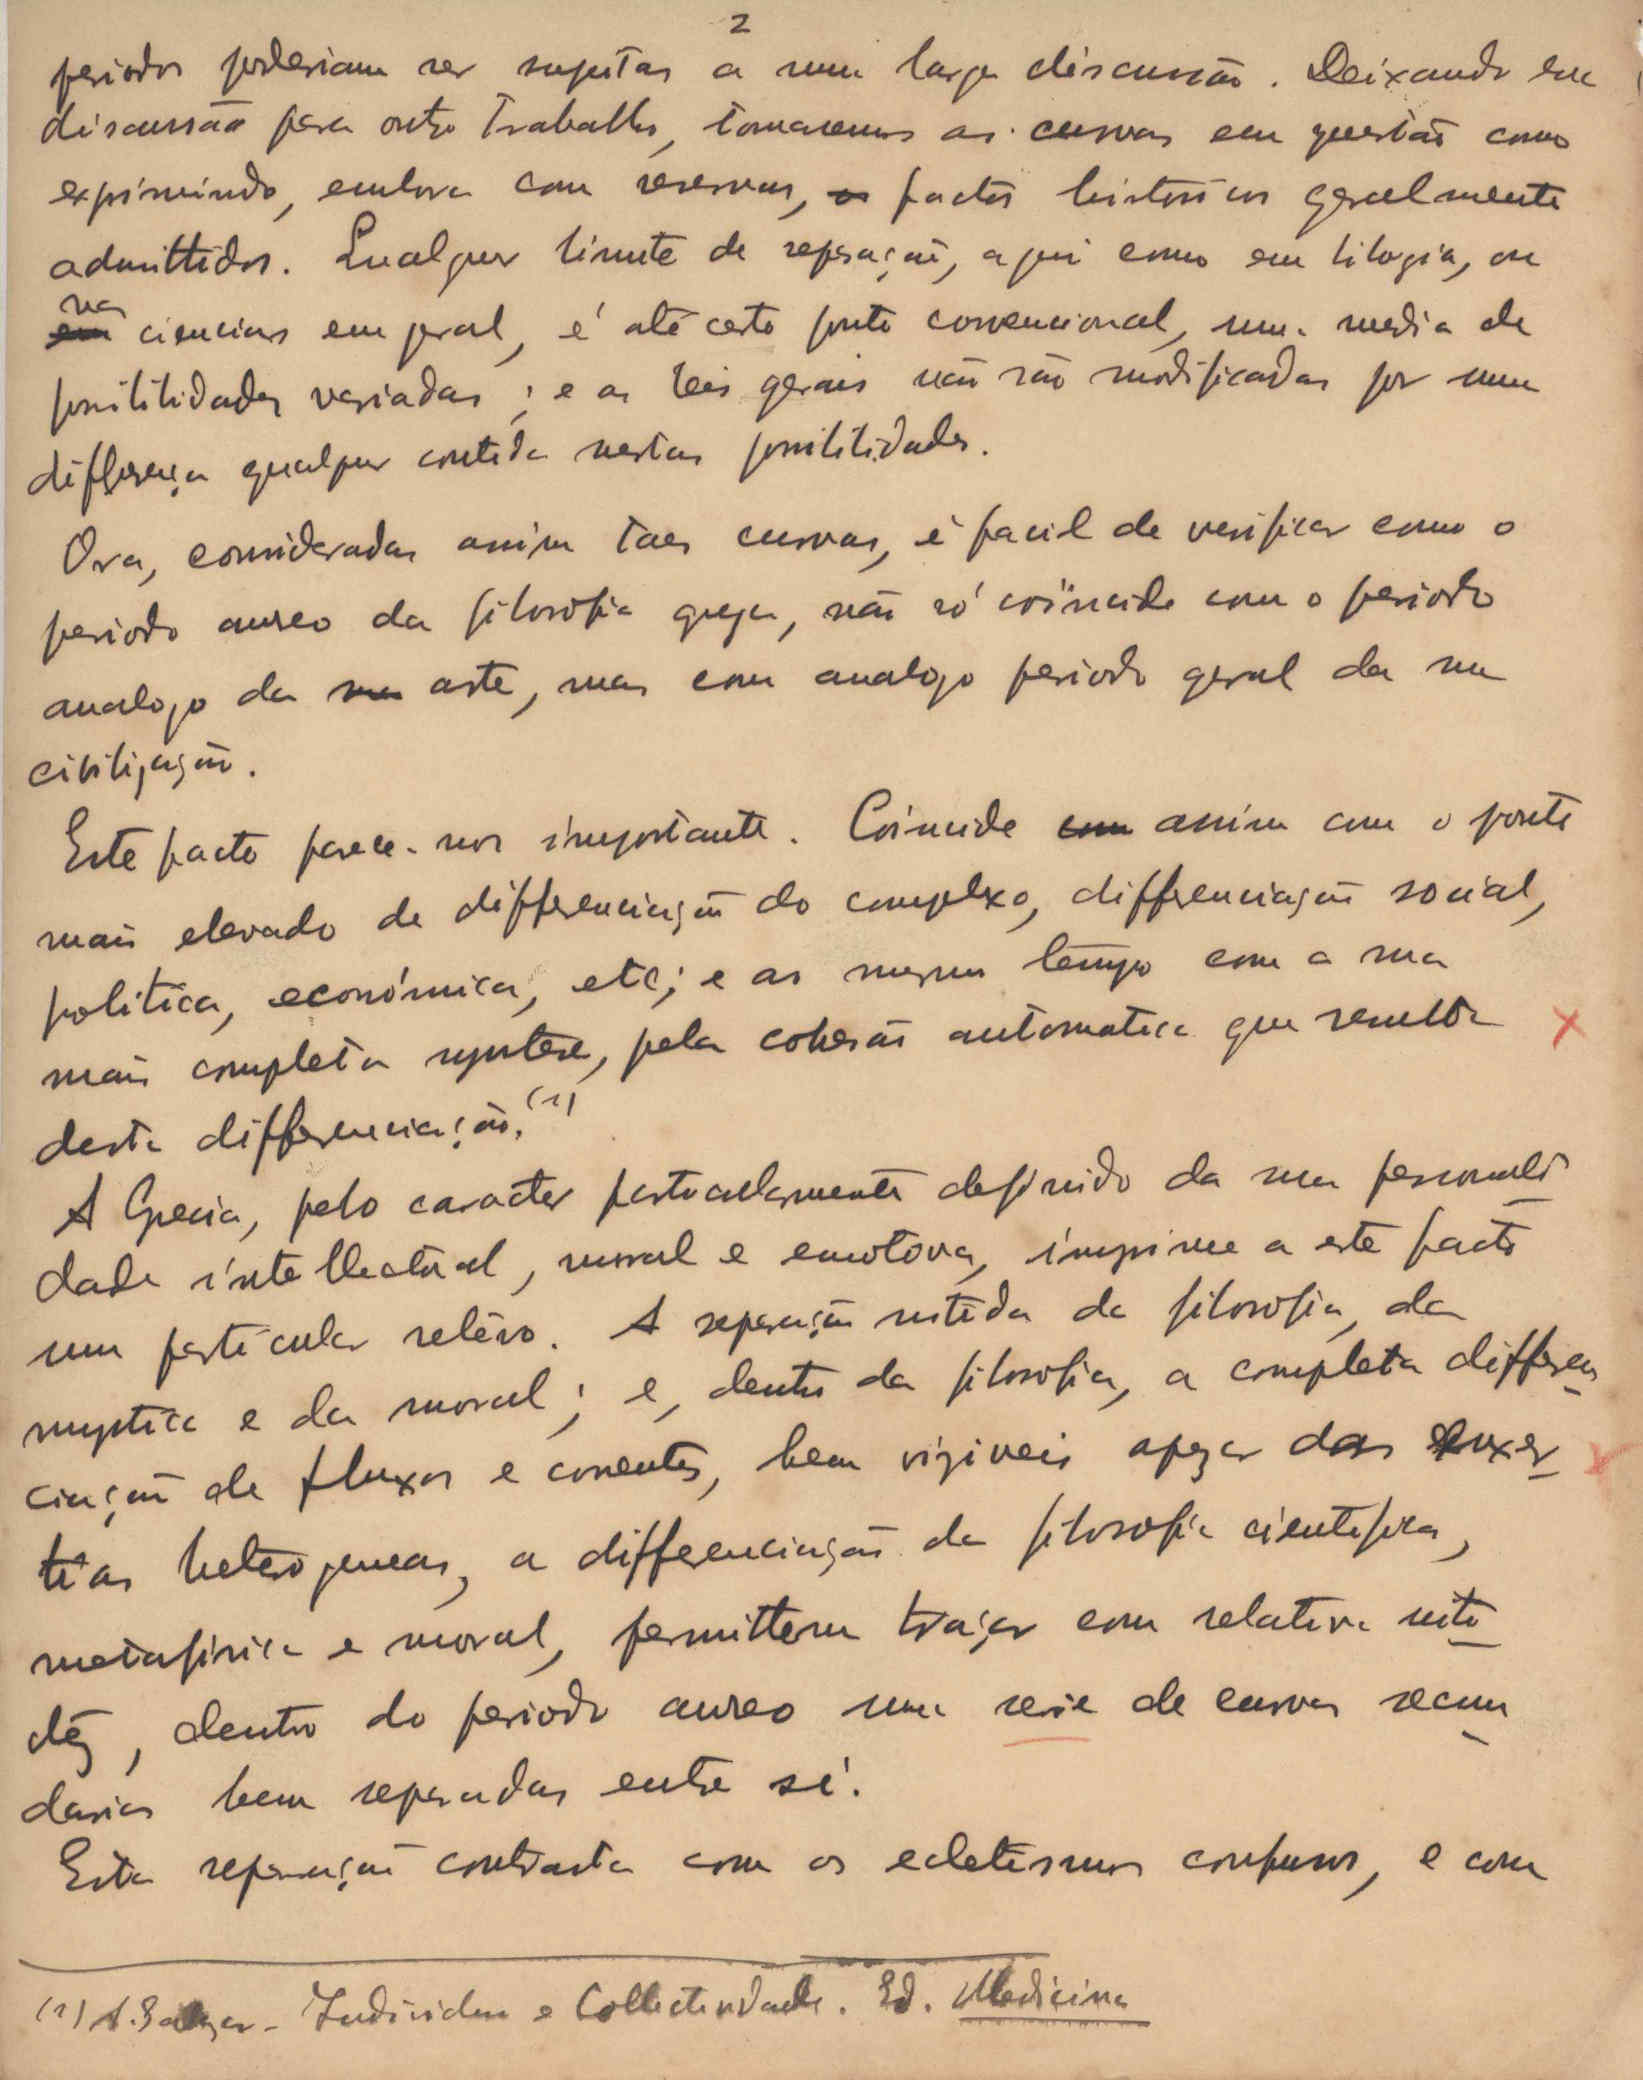 2
periodos poderiam ser sujeitas a uma larga discussão. Deixando essa
discussão para outro trabalho, tomaremos as curvas em questão como
exprimindo, embora com reservas, os factos historicos geralmente
admittidos. Qualquer limite de separação, aqui como em biologia, ou
nas
em ciencias em geral, é até certo ponto convencional, uma media de
possibilidades variadas; e as leis gerais não são modificadas por uma
differença qualquer contida nestas possibilidades.
Ora, consideradas assim taes curvas, é facil de verificar como o
periodo aureo da filosofia grega, não só coïncide com o periodo
analogo da sua arte, mas com analogo periodo geral da sua
civilização.
Este facto parece-nos importante. Coincide com assim com o ponto
mais elevado de differenciação do complexo, differenciação social,
politica, económica, etc; e ao mesmo tempo com a sua
mais completa syntese, pela cohesão automatica que resulta
desta differenciação.(1)
A Grecia, pelo caracter particularmente definido da sua personali
dade intellectual, moral e emotiva, imprime a este facto
um particular relêvo. A separação nitida da filosofia, da
mystica e da moral; e, dentro da filosofia, a completa differen
ciação de fluxos e correntes, bem vizíveis apezar das enxer
tias heterogeneas, a differenciação da filosofia cientifica,
metafisica e moral, permittem traçar com relativa niti
dêz, dentro do periodo aureo uma serie de curvas secun
darias bem separadas entre si.
Esta separação contrasta com os ecletismos confusos, e com
(1) A. Salazar - Individuo e Collectividade. Ed. Medicina